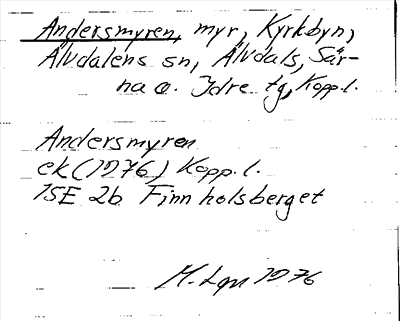 Andersmyren, myr, Kyrkbyn,
Älvdalens sn, Älvdals, Sär-
na o. Idre tg, Kopp.l.
Andersmyren
ek (1976) Kopp.l.
15E 2b Finnholsberget
M. Lgn 1976